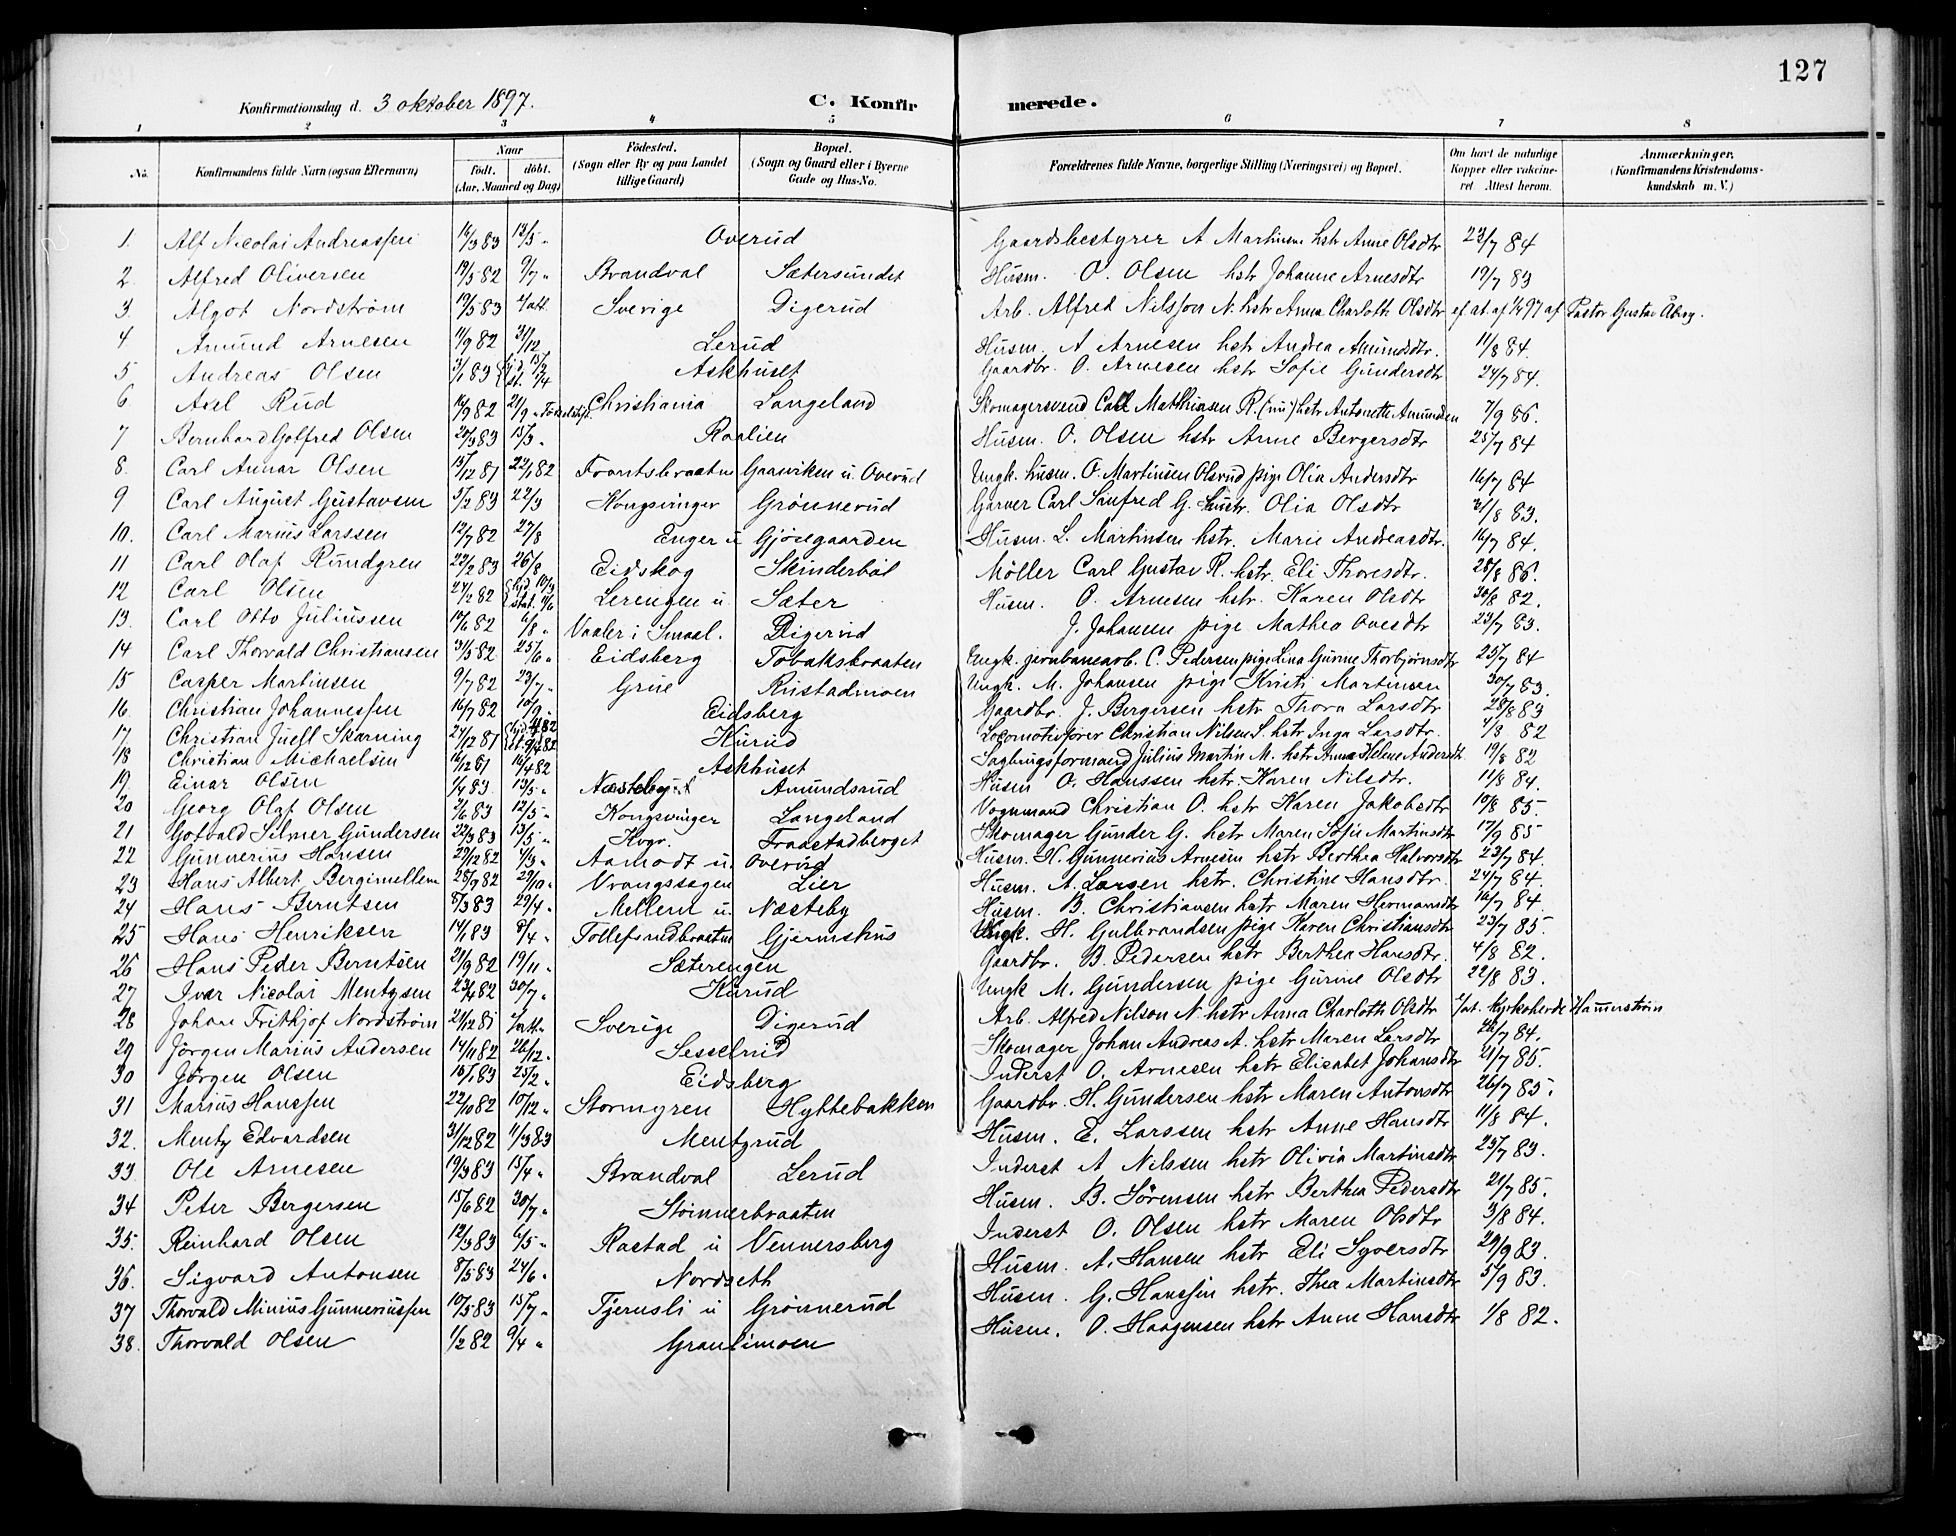 127
Konfirmationsdag d. 3 oktober 1897. C. Konfirmerede.
1 2 3 4 5 6 7 8
No. Konfirmandens fulde Navn (ogsaa Efternavn) Naar født. døbt. (Aar, Maaned og Dag) Fødested. (Sogn eller By og paa Landet tillige Gaard) Bopæl. (Sogn og Gaard eller i Byerne Gade og Hus-No. Forældrenes fulde Navne, borgerlige Stilling (Næringsvei) og Bopæl. Om havt de naturlige Kopper eller vakcineret Attest herom. Anmærkninger. (Konfirmandens Kristendomskundskab m. V.)
1. Alf Nicolai Andreassen 14/3 83 13/5 „ Overud Gaardsbestyrer A Martinsen hstr Anne Olsdtr 23/7 84
2. Alfred Oliversen 19/5 82 9/7 „ Brandval Sætersundet Husm. O. Olsen hstr Johanne Arnesdtr 19/7 83
3. Algot Nordstrøm 19/5 83 Sverige Digerud Arb. Alfred Nilsson N. hstr Anna Charlotte Olsdtr ef at. af 1/4 97 af Pastor Gustav Åberg.
4 Amund Arnesen 11/9 82 31/12 Lerud Husm. A Arnesen hstr Andrea Amundsdtr. 11/8 84.
5 Andreas Olsen 3/1 83 Askhuset Gaardbr. O. Arnesen hstr Sofie Gundersdtr 24/7 84.
6 Axel Rud 14/9 82 21/9 „ Christiania Langeland Skomagersvend Carl Mathiasen R. hstr Antonette Amundsen 7/9 86.
7 Bernhard Gotfred Olsen 20/3 83 15/5 „ Raalien Husm. O. Olsen hstr Anne Bergersdtr 25/7 84
8. Carl Annar Olsen 15/12 81 22/1 82 Frantsbraaten Gaaswiken u. Overud Ungk. husm. O. Martinsen Olsrud pige Olia Andersdtr 16/7 84
9 Carl August Gustavsen 5/2 83 22/3 Kongsvinger Grønnerud Garver Carl Sanfred G. hustr. Olia Olsdtr 31/8 83.
10. Carl Marius Larssen 12/7 82 27/8 Enger u Gjøsegaarden Husm. L. Martinsen hstr. Marie Andreasdtr. 16/7 84.
11 Carl Olaf Rundgren 22/2 83 26/8 Eidskog Skinderbøl Møller Carl Gustav R. hstr. Eli Thoresdtr. 28/8 86.
12 Carl Olsen 27/2 82 Lerengen u. Sæter Husm. O. Arnesen hstr. Karen Olsdtr 30/8 82.
13. Carl Otto Juliussen 10/6 82 6/8 „ Vaaler i Smaal. Digerud J. Johansen pige Mathea Ovesdtr 23/7 83.
14 Carl Thorvald Christiansen 31/3 82 25/6 „ Eidsberg Tobaksbraaten Ungk. jernbanearb. C. Pedersen pige Lina Gurine Thorbjørnsdtr 25/7 84
15 Casper Martinsen 9/7 82 23/7 „ Grue Rustadmoen Ungk. M. Johansen pige Kristi Martinsen 30/7 83.
16. Christian Johannessen 16/7 82 10/9 „ Eidsberg Gaardbr. J. Bergersen hstr Thora Larsdtr 28/8 83
17 Christian Juell Skarning 27/12 81 Kurud Locomotivfører Christian Nilsen S. hstr Inga Larsdtr. 4/8 82
18 Christian Michaelsen 16/12 81 16/4 82 Askhuset Sagbrugsformand Julius Martin M. hstr Anna Helene Andersdtr 19/8 82
19. Einar Olsen 1/4 83 13/5 „ Næsteby Amundsrud Husm O. Hanssen hstr Karen Nilsdtr. 11/8 84.
20 Georg Olaf Olsen 2/6 83 12/5 „ Kongsvinger Langeland Vognmand Christian O. hstr Karen Jakobsdtr 10/8 85.
21 Gotvald Selmer Gundersen 22/3 83 13/5 „ Kvgr. Fraastadberget Skomager Gunder G. hstr Maren Sofie Martinsdtr 17/9 85
22 Gunnerius Hansen 29/12 82 4/3 „ Aamodt u. Overud Husm. H. Gunnerius Arnesen hstr Berthea Halvorsdtr 23/7 84.
23 Hans Albert Bergimellem 28/9 82 29/10 „ Vrangssagen Lier Husm. A. Larsen hstr. Christine Hansdtr. 24/7 84.
24 Hans Berntsen 8/3 83 29/4 „ Mellem u. Næsteby Husm. B. Christiansen hstr Maren Hermansdtr 16/7 84.
25 Hans Henriksen 14/1 83 8/4 „ Tollefsrudbraaten Gjermshus Ungk. H. Gulbrandsen pige Karen Christiansdtr 23/7 85.
26 Hans Peder Berntsen 21/9 82 19/11 „ Sæterengen Gaardbr. B. Pedersen hstr Berthea Hansdtr. 4/8 82.
27 Ivar Nicolai Mentzsen 23/4 82 30/7 „ Kurud Ungk M. Gundersen pige Gurine Olsdtr 22/8 83.
28 Johan Frithjof Nordstrøm 21/12 81 Sverige Digerud Arb. Alfred Nilson N. hstr Anna Charlotte Olsdtr Kyrkoherde Hammerstrøm
29 Jørgen Marius Andersen 14/11 82 26/12 „ Sesselrud Skomager Johan Andreas A. hstr Maren Larsdtr 28/7 84.
30 Jørgen Olsen 15/1 83 25/2 „ Eidsberg Inderst O. Arnesen hstr Elisabet Johansdtr 21/7 85.
31 Marius Hanssen 22/10 82 10/12 „ Stormyren Hyttebakken Gaardbr. H. Gundersen hstr Maren Antonsdtr 26/7 85.
32. Mentz Edvardsen 31/12 82 11/3 83 Mentzrud Husm. E. Larssen hstr Anne Hansdtr 11/8 84.
33. Ole Arnesen 19/3 83 15/4 „ Brandval Lerud Inderst A Nilssen hstr Olivia Martinsdtr 23/7 83.
34 Peter Bergersen 15/6 82 30/7 „ Stømnerbraaten Husm. B. Sørensen hstr Berthea Pedersdtr 21/7 85.
35. Reinhard Olsen 12/3 83 6/5 „ Rastad u Vennersberg Inderst O. Olsen hstr Maren Olsdtr 3/8 84.
36. Sigvard Antonsen 8/5 83 24/6 „ Nordseth Husm. A. Hansen hstr Eli Syversdtr 29/9 83.
37 Thorvald Minius Gunneriussen 10/5 83 15/7 „ Tjernsli u Grønnerud Husm. G. Hanssen hstr. Thea Martinsdtr 5/9 83.
38. Thorvald Olsen 1/2 82 9/4 „ Granlimoen Husm. O. Haagensen hstr Anne Hansdtr 1/8 82.